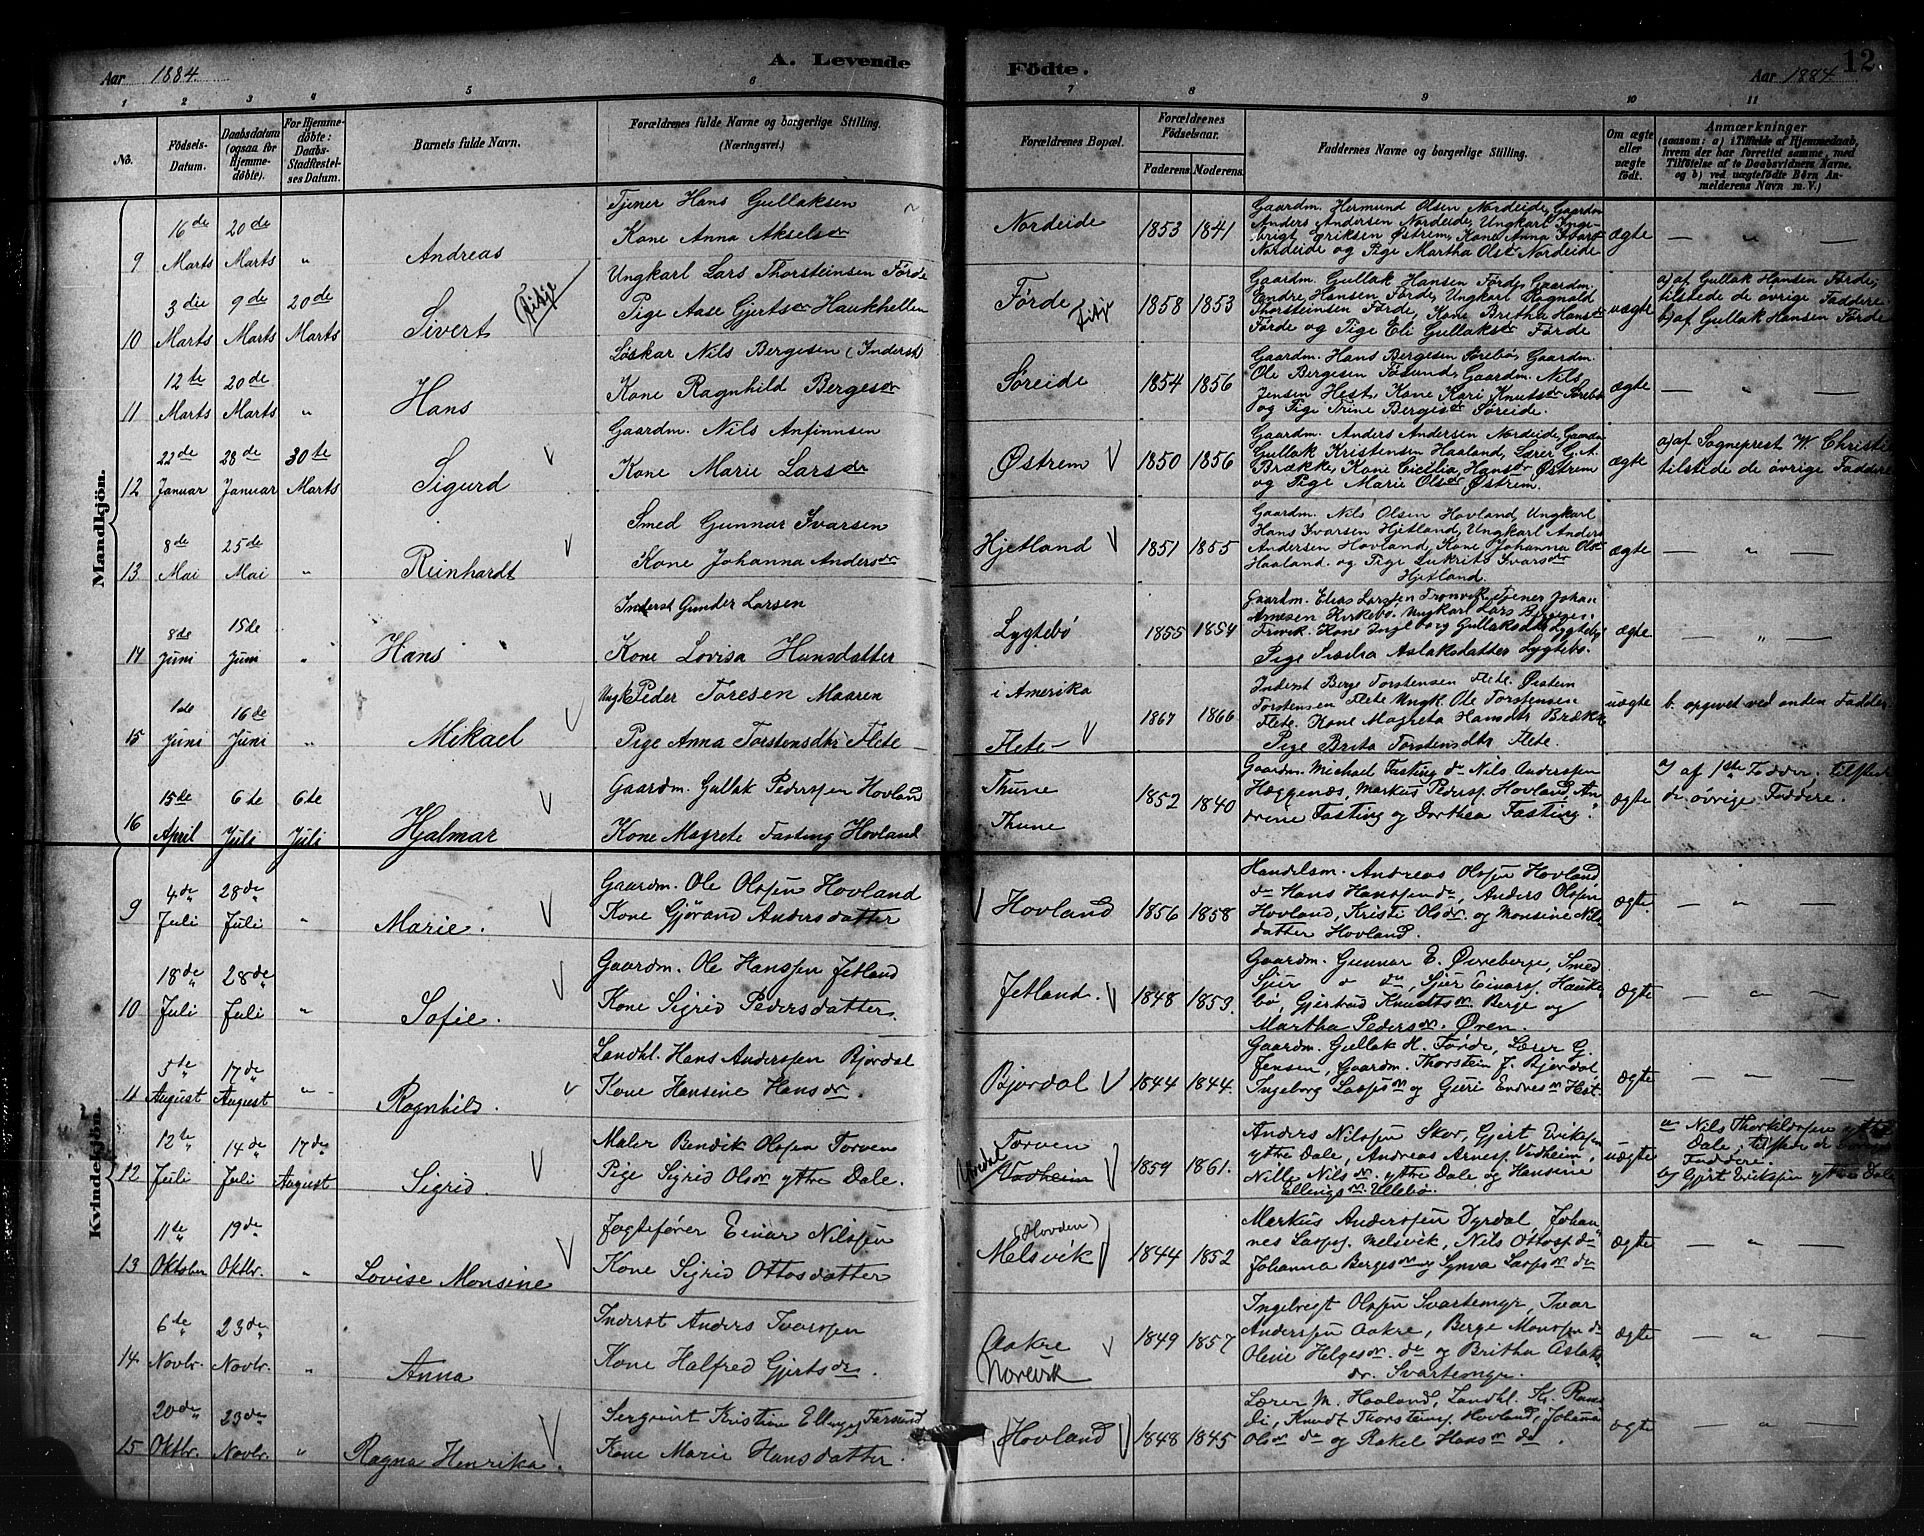 Aar 1884.
A. Levende
Födte.
Aar 1884
12
1 2 3 4 5 6 7 8 9 10 11
No.
Födsels-Datum.
Daabsdatum (ogsaa for Hjemmedöbte).
For Hjemmedöbte: Daabs-Stadfæstelses Datum.
Barnets fulde Navn.
Forældrenes fulde Navne og borgerlige Stilling.
(Næringsvei.)
Forældrenes Bopæl.
Forældrenes Födselsaar.
Faderens. Moderens.
Faddernes Navne og borgerlige Stilling.
Om ægte eller uægte födt.
Anmærkninger
(saasom: a) i Tilfælde af Hjemmedaab, hvem der har forrettet samme, med Tilföielse af to Daabsvidners Navne, og b) ved uægtefödte Börn Anmelderens Navn m. V.)
Mandkjön.
9 16de Marts 20de Marts " Andreas
Tjener Hans Gullaksen
Kone Anna Akselsdr
Nordeide 1853 1841
Gaardm. Hermund Olsen Nordeide, Gaardm
Anders Andersen Nordeide, Ungkarl Inge-
brigt Eriksen Østrem, Kone Anna Ivarsdr
Nordeide og Pige Martha Olsdr Nordeide
ægte — " —
10 3die Marts 9de Marts 20de Marts Sivert
Ungkarl Lars Thorsteinsen Förde
Pige Aase Gjertsdr Haukhellen
Förde 1858 1853
Gaardm. Gullak Hansen Förde, Gaardm.
Endre Hansen Förde, Ungkarl Ragnald
Thorsteinsen Förde, Kone Britha Hansdr
Förde og Pige Eli Gullaksdr Förde
uægte
a) af Gullak Hansen Förde,
tilstede de øvrige Faddere
b) af Gullak Hansen Förde
11 12te Marts 20de Marts " Hans
Løskar Nils Bergesen (Inderst)
Kone Ragnhild Bergesdr
Søreide 1854 1856
Gaardm. Hans Bergesen Sørebø, Gaardm.
Ole Bergesen Tösund, Gaardm. Nils
Jensen Hest, Kone Kari Knutsdr Sørebø
og Pige Trine Bergesdr Søreide.
ægte — " —
12 22de Januar 28de Januar 30te Marts Sigurd
Gaardm. Nils Anfinnsen
Kone Marie Larsdr
Østrem 1850 1856
Gaardm. Anders Andersen Nordeide, Gaardm
Gullak Kristensen Haaland, Lærer G. A.
Brække, Kone Cicilia Hansdr Østrem
og Pige Marie Olsdr Østrem.
ægte
a) af Sogneprest W. Christie
tilstede de øvrige Faddere
13 8de Mai 25de Mai " Reinhardt
Smed Gunnar Ivarsen
Kone Johanna Andersdr
Hjetland 1851 1855
Gaardm. Nils Olsen Hovland, Ungkarl
Hans Ivarsen Hjetland, Ungkarl Anders
Andersen Hovland, Kone Johanna Olsdr
Haaland og Pige Lukrits Ivarsdr
Hjetland.
ægte — " —
14 8de Juni 15de Juni " Hans
Inderst Gunder Larsen
Kone Lovisa Hansdatter
Lygtebö 1855 1854
Gaardm. Elias Larssen Tronvik, Tjener Johan
Arnesen Kirkebö, Ungkarl Lars Berger
Kone Ingeborg Gullaksdtr Lygtebö
Pige Aslaksdatter Lygtebö.
ægte — " —
15 1ste Juni 16de Juni " Mikael
Ungk. Peder Toresen Maaren
Pige Anna Torstensdtr Flete
i Amerika
Flete 1867 1866
Inderst Berge Torstensen Flete. Øistein
Torstensen Flete Ungk. Ole Torstensen
Flete. Kone Magreta Hansdtr Brække
Pige Brita Torstensdtr Flete.
uægte
b. opgivet ved anden Fadder.
16 15de April 6te Juli 6te Juli Hjalmar
Gaardm. Gullak Pederssen Hovland
Kone Magrete Fasting Hovland
Thune
Thune 1852 1840
Gaardm. Michael Fasting do Nils Anderssen
Hæggenæs, Markus Pederss. Hovland, An-
drine Fasting og Dorthea Fasting.
ægte
a) af 1ste Fadder. tilstede
de øvrige Faddere.
Kvindekjön.
9 4de Juli 28de Juli " Marie.
Gaardm. Ole Olssen Hovland
Kone Gjørand Andersdatter
Hovland 1856 1858
Handelsm. Andreas Olssen Hovland
do Hans Hanssen do, Anders Olssen
Hovland, Kristi Olsdr. og Monsine Nils-
datter Hovland.
ægte. — " —
10 18de Juli 28de Juli " Sofie.
Gaardm. Ole Hanssen Jetland
Kone Sigrid Pedersdatter.
Jetland. 1848 1853.
Gaardm. Gunnar E. Øvreberge, Smed
Sjur do, Sjur Einarss. Hauke-
bø, Gjertrud Knudtsdr. Berge og
Martha Pedersdr. Øren.
ægte — " —
11 5te August 17de August " Ragnhild.
Landhl. Hans Anderssen Bjordal
Kone Hansine Hansdr.
Bjordal 1844 1844.
Gaardm. Gullak H. Førde, Lærer G.
Jensen, Gaardm. Thorstein J. Bjordal,
Ingeborg Larsdr og Guri Endresdr Hest.
ægte — " —
12 12te Juli 14de Juli 17de August Sigrid.
Maler Bendik Olssen Torven
Pige Sigrid Olsdr ytre Dale.
Torven
Vadheim 1859 1861.
Anders Nilssen Skor, Gjert Erikssen
ytre Dale, Andreas Arness. Vadheim,
Nille Nilsdr. ytre Dale og Hansine
Ellingsdr. Ullebø.
uægte
a Nils Thorkildssen ytre
Dale, tilstede de øvrige
Faddere.
b) Gjert Erikssen ytre Dale
13 11te Oktober 19de Oktbr. " Lovise Monsine
Fogtefører Einar Nilssen
Kone Sigrid Ottosdatter
(Hovden)
Melsvik 1844 1852
Markus Anderssen Dyrdal, Johan-
nes Larss. Melsvik, Nils Ottoss. do
Johanna Bergesdr og Synva Larsdr do
ægte — " —
14 6te Novbr. 23de Novbr. " Anna
Inderst Anders Ivarssen
Kone Halfred Gjertsdr.
Aakre
Norevik 1849 1857
Ingebrigt Olssen Svartemyr, Ivar
Anderssen Aakre, Berge Monssen do
Oline Helgesdr. do og Britha Aslaks-
dr. Svartemyr.
ægte — " —
15 20de Oktbr. 23de Novbr. " Ragna Henrika.
Sergeant Kristian Ellingss. Farsund
Kone Marie Hansdatter.
Hovland 1848 1845
Lærer M. Haaland, Landhl. Kr.
Knudt Thorsteins. Hovland, Johanna
Olsdr do og Rakel Hansdr do.
ægte — " —